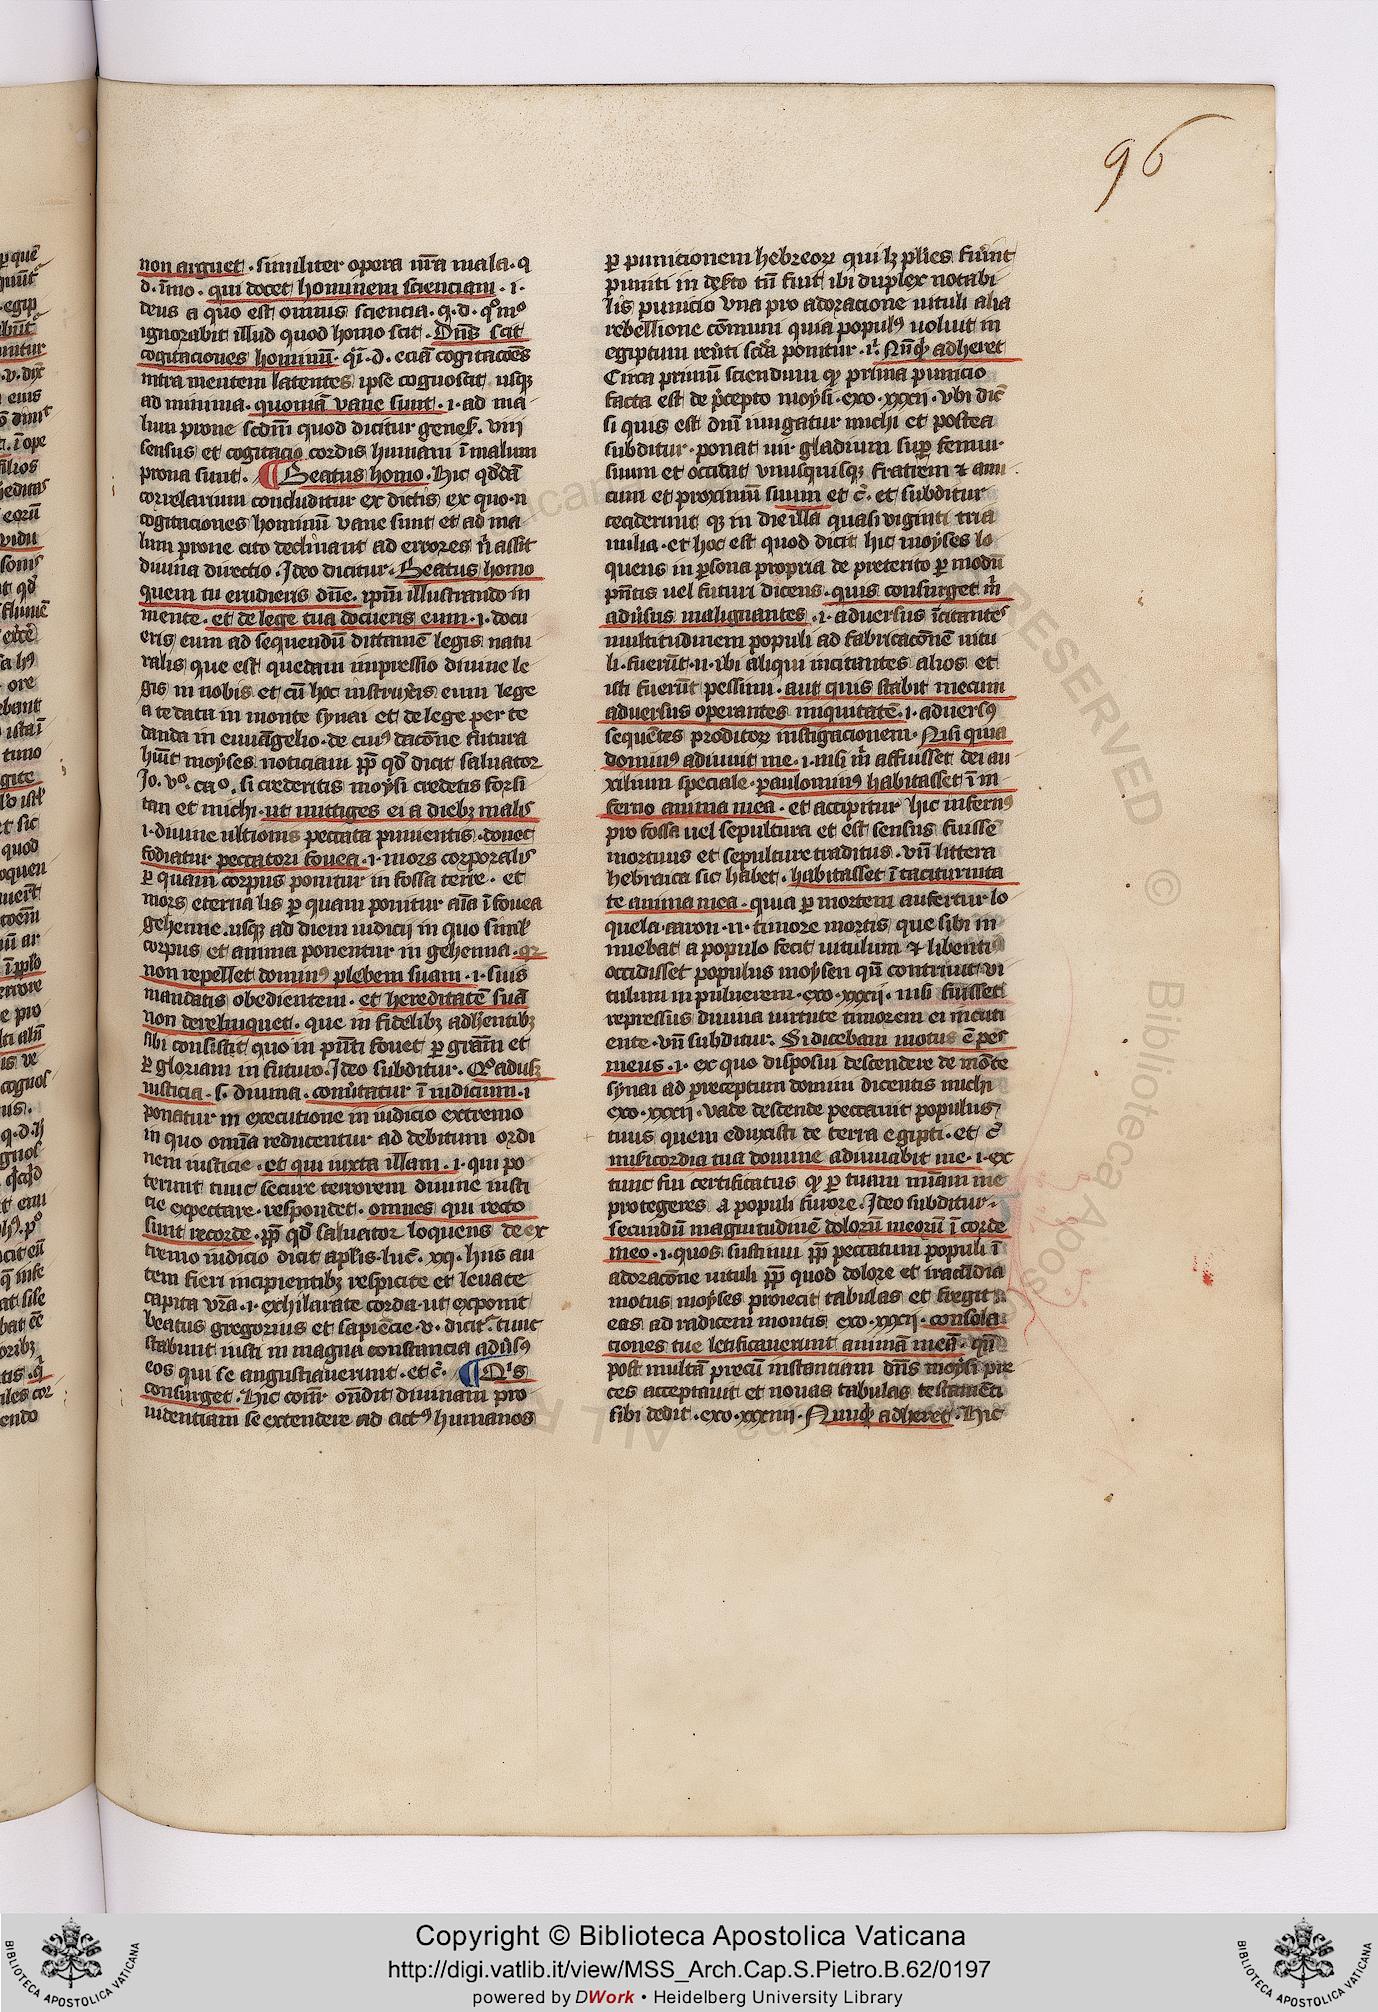 96
non arguet · similiter opera nr̄a mala · q
d. īmo · qui docet hominem scienciam · i ·
deus a quo est omnis sciencia · q · d · qͦmͦ
ignorabit illud quod homo scit · Dn̄s scit
cogitaciones hominū · qī · d · eciā cogitacōes
intra mentem latentes ipse cognoscit usqꝫ
ad minima · quoniā vane sunt · i · ad ma
lum prone scd̄m quod dicitur geneſ · viii
sensus et cogitacio cordis humani ī malum
prona sunt · ¶ Beatus homo · Hic qd̄dā
correlarium concluditur ex dictis ex quo · n
cogitaciones hominū vane sunt et ad ma
lum prone cito declinant ad errores n̄ assit
diuina directio · Ideo dicitur · Beatus homo
quem tu erudieris dn̄e · ip̄m illustrando in
mente · et de lege tua docueris eum · i · docu
eris eum ad sequendū dictamē legis natu
ralis que est quedam impressio diuine le
gis in nobis et cū hoc instrux̄is eum lege
a te data in monte synai et de lege per te
danda in euuāgelio · de cuiꝰ dacōne futura
hūit moyses noticiam pp̄ qd̄ dicit saluator
Jo. vͦ. caͦ. si crederitis moysi credetis forsi
tan et michi · ut mittiges ei a diebꝫ malis
i · diuine ultionis peccata punientis · donec
fodiatur peccatori fouea · i · mors corporalis
ꝑ quam corpus ponitur in fossa terre · et
mors eterna lis ꝑ quam ponitur aīa ī fouea
gehenne usqꝫ ad diem iudicij in quo simul
corpus et anima ponentur in gehenna · qꝛ
non repellet dominꝰ plebem suam · i · suis
mandatis obedientem · et hereditatē suā
non derelinquet · que in fidelibꝫ adh̄entibꝫ
sibi consistit quo in pn̄ti fouet ꝑ grām et
ꝑ gloriam in futuro · Ideo subditur · Qͦadusqꝫ
iusticia · s · diuina · conūtatur ī iudicium · i
ponatur in executione in iudicio extremo
in quo omīa reducentur ad debitum ordi
nem iusticie · et qui iuxta illam · i · qui po
terunt tunc secure terrorem diuine iusti
cie expectare · respondet · omnes qui recto
sunt recorde · pp̄ qd̄ saluator loquens de ex
tremo iudicio dicit aplis · luc̄ · xxi · hiis au
tem fieri incipientibꝫ respicite et leuate
capita vr̄a · i · exhilarate corda · ut exponit
beatus gregorius et sapiēcie · v · dicit̄ · tunc
stabunt iusti in magna constancia adūsꝰ
eos qui se angustiauerunt · et c̄ · ¶ Qis
consurget · Hic com̄r on̄dit diuinam pro
uidentiam se extendere ad actꝰ humanos
ꝑ punitionem hebreoꝝ qui lꝫ plīes fūint
puniti in deſto tn̄ fuit ibi duplex notabi
lis punicio vna pro adoracione uituli alia
rebellione cōmuni quia populꝰ uoluit in
egiptum reūti scda ponitur · ī · Nūqͥd adheret
Circa primū sciendum qꝫ prima punicio
facta est de p̄cepto moysi · exo · xxxii · vbi dic̄
si quis est dn̄i iungatur michi et postea
subditur · ponat uir gladium sup̄ femur
suum et occidat vnusquisqꝫ fratrem ⁊ ami
cum et proximū suum et c̄ · et subditur
ceciderunt qꝫ in die illa quasi viginti tria
milia · et hoc est quod dicit hic moyses lo
quens in ꝑsona propria de preterito ꝑ modū
pn̄tis uel futuri dicens · quis consurget m̄
adūsus malignantes · i · aduersus īcitantes
multitudinem populi ad fabricacōnē uitu
li · fuerūt · n · ibi aliqui incitantes alios et
isti fuerūt pessimi · aut quis stabit mecum
aduersus operantes iniquitatē · i · aduersꝰ
sequētes proditoꝝ instigacionem · Nisi quia
dominꝰ adiuuit me · i · nisi m̄ affuisset dei au
xilium speciale · paulominꝰ habitasset ī in
ferno anima mea · et accipitur hic infernꝰ
pro fossa uel sepultura et est sensus fuissē
mortuus et sepulture traditus · vn̄ littera
hebraica sic habet · habitasset ī taciturnita
te anima mea · quia ꝑ mortem aufertur lo
quela · aaron · n · timore mortis que sibi im
minebat a populo fecit uitulum ⁊ libentiꝰ
occidisset populus moysen qn̄ contriuit vi
tulum in puluerem · exo · xxxii · nisi fuisset
repressus diuina uirtute timorem ei incuti
ente · vn̄ subditur · Si dicebam motus ē pes
meus · i · ex quo disposui descendere de mōte
synai ad preceptum domini dicentis michi
exo · xxxii · vade descende peccauit populus
tuus quem eduxisti de terra egipti · et c̄
mīcordia tua domine adiuuabit me · i · ex
tunc fui certificatus qꝫ ꝑ tuam mīam me
protegeres a populi furore · Ideo subditur ·
secundū magnitudinē dolorū meorū ī corde
meo · i · quos sustinui pp̄ peccatum populi ī
adoracōne uituli pp̄ quod dolore et iracūdia
motus moyses proiecit tabulas et fregit
eas ad radicem montis exo · xxxii · consola
ciones tue letificauerunt animā meā · qn̄
post multā precū instantiam dn̄s moysi pre
ces acceptauit et nouas tabulas testamēti
sibi dedit · exo · xxxiiii · Nunqͥd adheret · Hic
Copyright © Biblioteca Apostolica Vaticana
http://digi.vatlib.it/view/MSS_Arch.Cap.S.Pietro.B.62/0197
powered by DWork • Heidelberg University Library